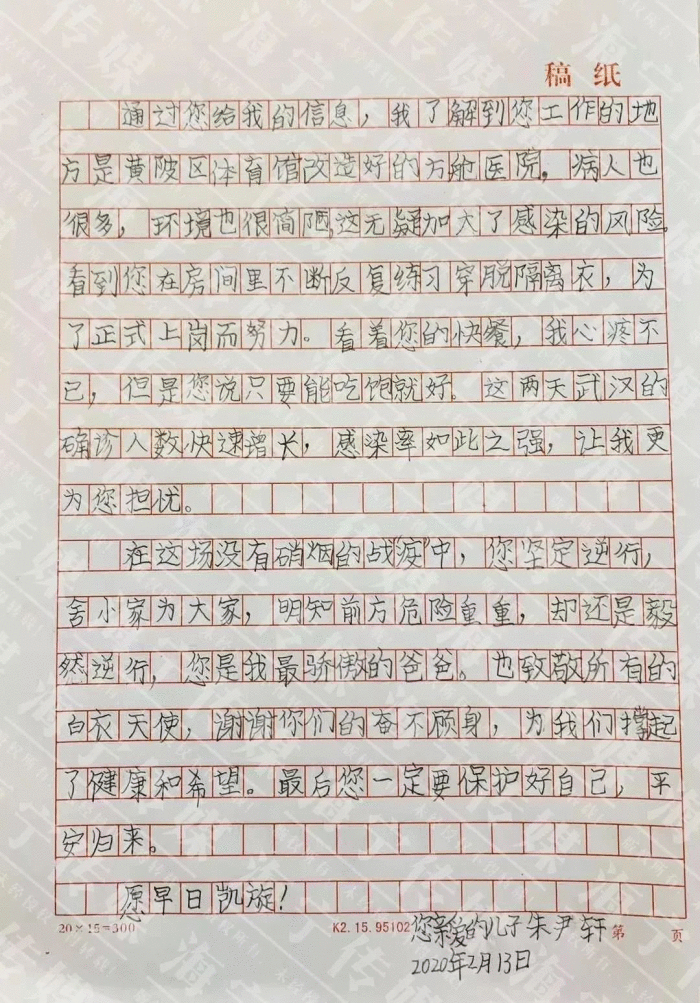 稿纸
通过您给我的信息，我了解到您工作的地
方是黄陂区体育馆改造好的方舱医院，病人也
很多，环境也很简陋，这无疑加大了感染的风险。
看到您在房间里不断反复练习穿脱隔离衣，为
了正式上岗而努力。看着您的快餐，我心疼不
已，但是您说只要能吃饱就好。这两天武汉的
确诊人数快速增长，感染率如此之强，让我更
为您担忧。
在这场没有硝烟的战“疫”中，您坚定逆行，
舍小家为大家，明知前方危险重重，却还是毅
然逆行，您是我最骄傲的爸爸。也致敬所有的
白衣天使，谢谢你们的奋不顾身，为我们撑起
了健康和希望。最后您一定要保护好自己，平
安归来。
愿早日凯旋！
20×15=300 K2.15.95102 第 页
您亲爱的儿子朱尹轩
2020年2月13日
海宁传媒